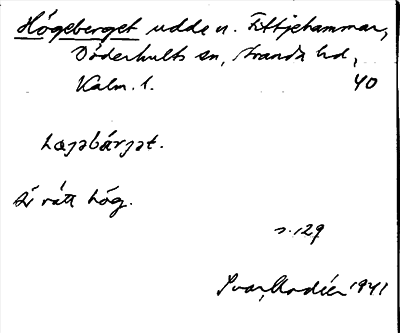 Högeberget udde n. Fittjehammar,
Döderhults sn, Stranda hd,
Kalm. l. 40
hǫgəbárjət.
är rätt hög.
s. 129
Ivar Modéer 1941